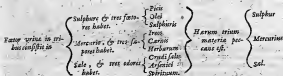 Fœtor urinæ in tri-
bus consistit in
Sulphure & tres fœto-
res habet.
Mercurio, & tres sa-
pores habet.
Sale, & tres odores
habet.
Picis
Olei
Sulphuris
Carnis
Herbarum
Crudi salis
Arsenici
Spirituum.
Harum trium
materia pec-
cans est.
Sulphur
Mercurius
Sal.